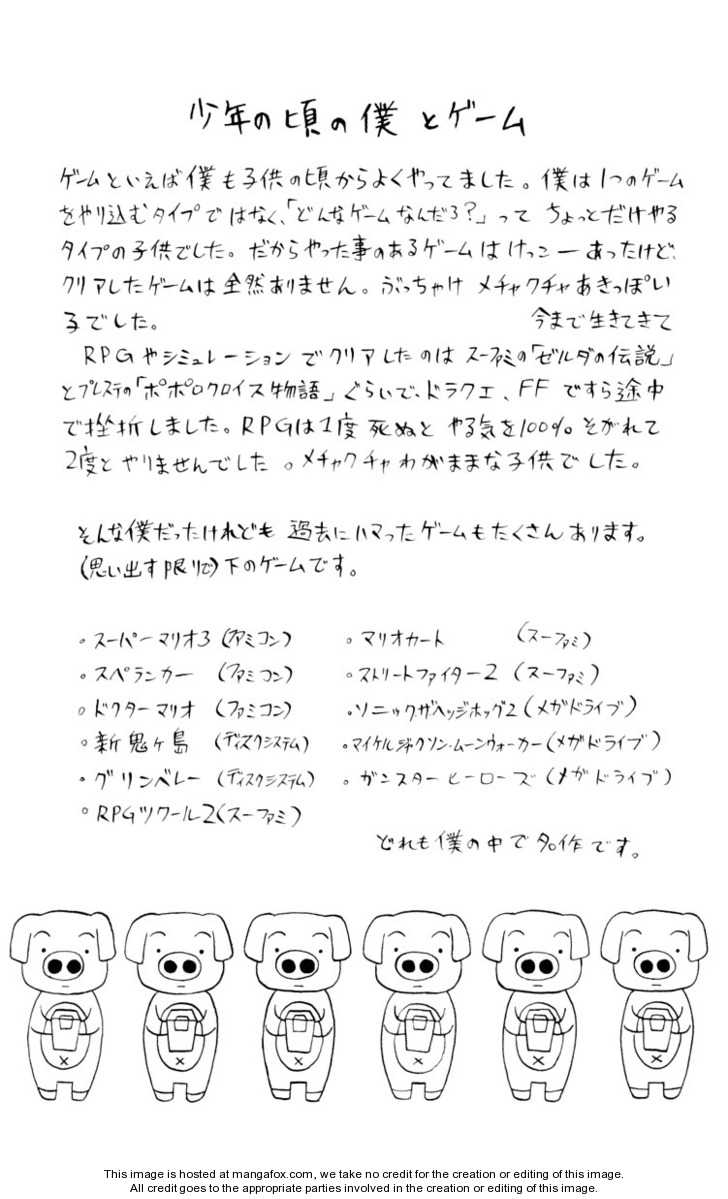 少年の頃の僕とゲーム
ゲームといえば僕も子供の頃からよくやってました。僕は1つのゲーム
をやり込むタイプではなく、「どんなゲームなんだろ?」って ちょっとだけやる
タイプの子供でした。だからやった事のあるゲームはけっこーあったけど、
クリアしたゲームは全然ありません。ぶっちゃけ メチャクチャあきっぽい
子でした。 今まで生きてきて
RPGやシミュレーションでクリアしたのは スーファミの「ゼルダの伝説」
とプレステの「ポポロクロイス物語」ぐらいで、ドラクエ、FFですら途中
で挫折しました。RPGは1度死ぬと やる気を100%そがれて
2度とやりませんでした。メチャクチャわがままな子供でした。
そんな僕だったけれども 過去にハマったゲームもたくさんあります。
(思い出す限りで)下のゲームです。
◦スーパーマリオ3(ファミコン)
◦スペランカー(ファミコン)
◦ドクターマリオ(ファミコン)
◦新鬼ヶ島(ディスクシステム)
◦グリンベレー(ディスクシステム)
◦RPGツクール2(スーファミ)
◦マリオカート(スーファミ)
◦ストリートファイター2(スーファミ)
・ソニック・ザ・ヘッジホッグ2(メガドライブ)
・マイケルジャクソン・ムーンウォーカー(メガドライブ)
◦ガンスターヒーローズ(メガドライブ)
どれも僕の中で名作です。
This image is hosted at mangafox.com, we take no credit for the creation or editing of this image.
All credit goes to the appropriate parties involved in the creation or editing of this image.